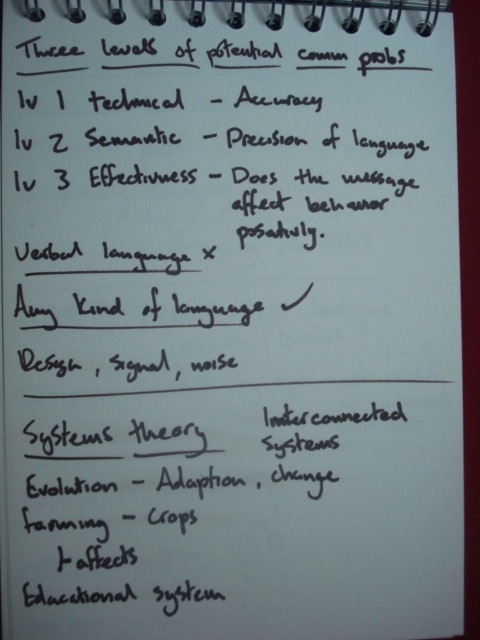 Three levels of potential comm probs
lv 1 technical - Accuracy
lv 2 Semantic - Precision of language
lv 3 Effectivness - Does the message
affect behavior
posativly.
Verbal language x
Any Kind of language ✓
Design, signal, noise
Systems theory
Interconnected
systems
Evolution - Adaption, change
farming - Crops
affects
Educational system